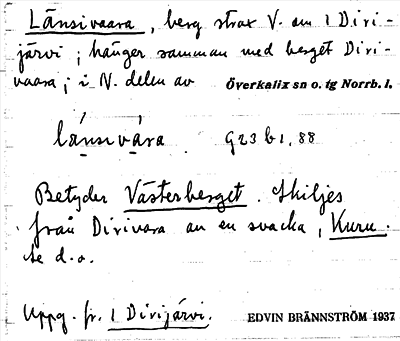 Länsivaara, berg strax V. om 1 Diri-
järvi; hänger samman med berget Diri-
vaara; i N. delen av Överkalix sn o. tg Norrb. l.
länsivára G23 b1, 88
Betyder Västerberget. Skiljes
från Dirivara av en svacka, Kuru.
Se d.o.
Uppg. fr. 1 Dirijärvi. EDVIN BRÄNNSTRÖM 1937